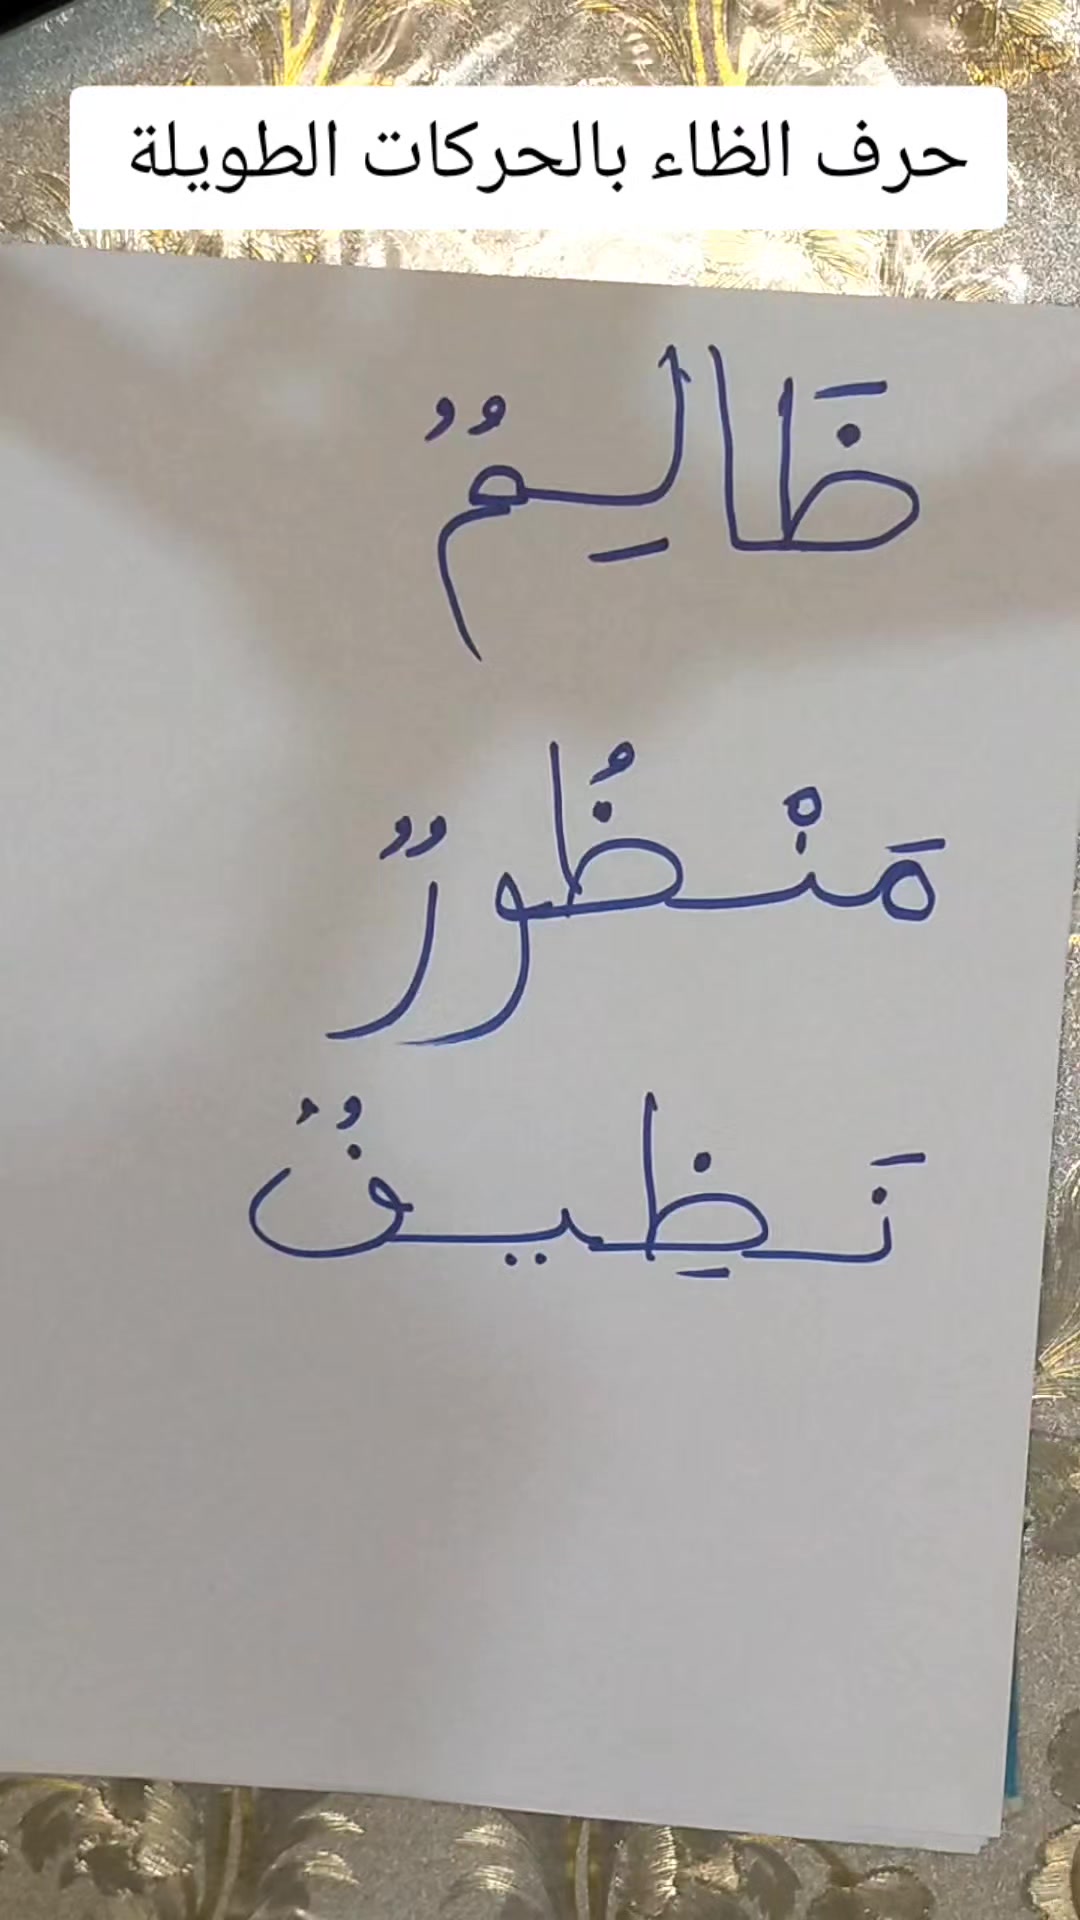 حرف الظاء بالحركات الطويلة
ظَالِمٌ
مَنْظُورٌ
نَظِيفٌ